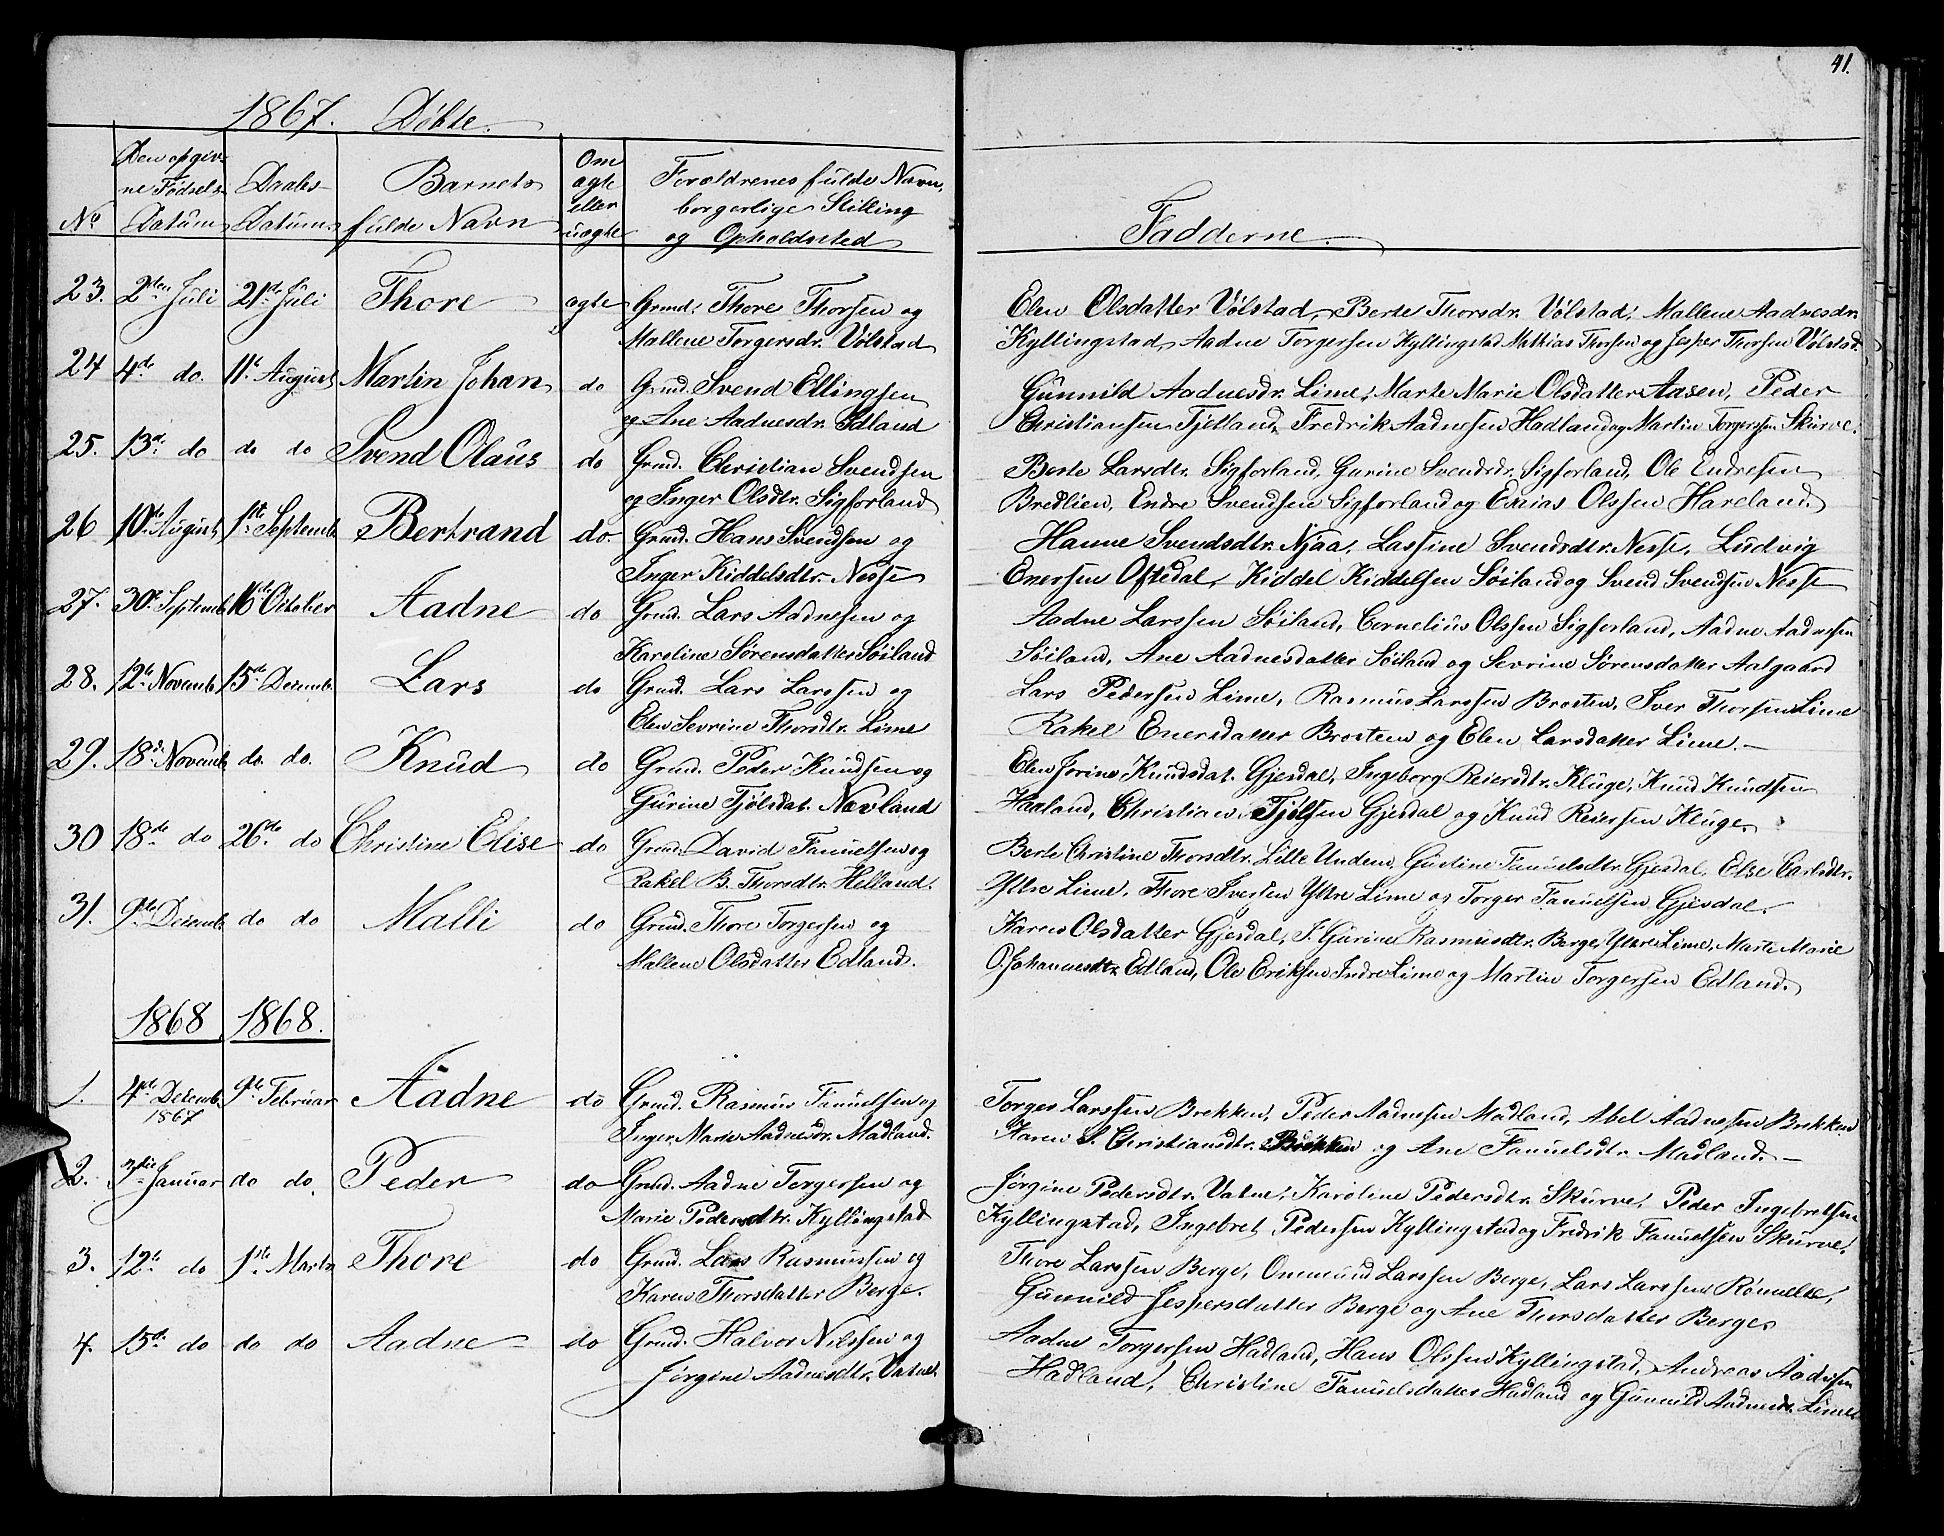 41.
1867. Døbte.
No
Den opgiv-
ne Fødsels-
Datum
Daabs-
Datum
Barnets
fulde Navn
Om
ægte
eller
uægte
Forældrenes fulde Navn,
borgerlige Stilling
og Opholdssted
Fadderne.
23. 2den Juli 21de Juli Thore ægte Grmd. Thore Thorsen og
Mallene Torgersdr. Vølstad
Elen Olsdatter Vølstad, Berte Thorsdr. Vølstad, Mallene Aadnesdr.
Kyllingstad, Aadne Torgersen Kyllingstad Mathias Thorsen og Jesper Thorsen Vølstad.
24 4de do. 11te August Martin Johan do Grmd. Svend Ellingsen
og Ane Aadnesdr. Edland
Gunnild Aadnesdr. Lime, Marte Marie Olsdatter Aasen, Peder
Christiansen Tjetland, Fredrik Aadnesen Hadland og Martin Torgersen Skurve.
25. 13de do do do Svend Olaus do Grmd. Christian Svendsen
og Inger Olsdtr. Sigforland
Berte Larsdtr. Sigforland, Gurine Svendsdr. Sigforland, Ole Endresen
Bredlien, Endre Svendsen Sigforland og Enias Olssen Hareland.
26 10de August 1ste Septemb. Bertrand do. Grmd. Hans Svendsen og
Inger Kiddelsdtr. Nesse
Hanne Svendsdtr. Njaa, Lassine Svendsdtr. Nesse, Ludvig
Enersen Oftedal, Kiddel Kiddelsen Søiland og Svend Svendsen Nesse
27. 30te Septemb. 16de October Aadne do Grmd. Lars Aadnesen og
Karoline Sørensdatter Søiland
Aadne Larssen Søiland, Cornelius Olssen Sigforland, Aadne Aadnesen
Søiland, Ane Aadnesdatter Søiland og Sevrine Sørensdatter Aalgaard
28. 12te Novemb. 15de Decemb. Lars do Grmd. Lars Larssen og
Elen Sevrine Thorsdtr. Lime
Lars Pedersen Lime, Rasmus Larssen Brosten, Iver Thorsen Lime
Rakel Enersdatter Brosten og Elen Larsdatter Lime.
29. 18de Novemb. do. do. Knud do Grmd. Peder Knudsen og
Gurine Tjølsdat. Navland
Elen Jorine Knudsdat. Gjesdal, Ingeborg Reiersdtr. Kluge, Knud Knudsen
Haaland, Christian Tjølsen Gjesdal og Knud Reiersen Kluge.
30 18de do 26de do Christine Elise do Grmd. David Fanuelsen og
Rakel B. Thorsdtr. Helland.
Berte Christine Thorsdtr. Lille Undem, Gustine Fanuelsdtr. Gjesdal, Else Carlsdtr.
Ytre Lime, Thore Iversen Ytre Lime og Torger Fanuelsen Gjesdal.
31. 9de Decemb. do do Malli do Grmd. Thore Torgersen og
Mallene Olsdatter Edland.
Karen Olsdatter Gjesdal, J. Gurine Rasmusdtr. Berge, Ytre Lime, Marte Marie
O. Johannesdtr. Edland, Ole Eriksen Indre Lime og Martin Torgersen Edland.
1868 1868.
1. 4de Decemb. 1867 9de Februar Aadne do Grmd. Rasmus Fanuelsen og
Inger Marie Aadnesdr. Madland.
Torger Larssen Brekken, Peder Aadnesen Madland, Abel Aadnesen Brekken
Karen S. Christiansdtr. Brekken og Ane Fanuelsdtr. Madland.
2. 7de Januar do do. Peder do Grmd. Aadne Torgersen og
Marie Pedersdtr. Kyllingstad
Jørgine Pedersdtr. Vatne, Karoline Pedersdtr. Skurve, Peder Ingebretsen
Kyllingstad, Ingebret Pedersen Kyllingstad og Fredrik Fanuelsen Skurve.
3. 12te do 1ste Marts Thore do Grmd. Lars Rasmussen og
Karen Thorsdatter Berge.
Thore Larssen Berge, Onemund Larssen Berge, Lars Larssen
Gunnild Jespersdatter Berge og Ane Thorsdatter Berge.
4. 15de do do do Aadne do Grmd. Halvor Nilssen og
Jørgine Aadnesdtr. Vatne.
Aadne Torgersen Hadland, Hans Olssen Kyllingstad, Andreas Aadnesen
Hadland, Christine Fanuelsdatter Hadland og Gunnild Aadnesdr. Lime